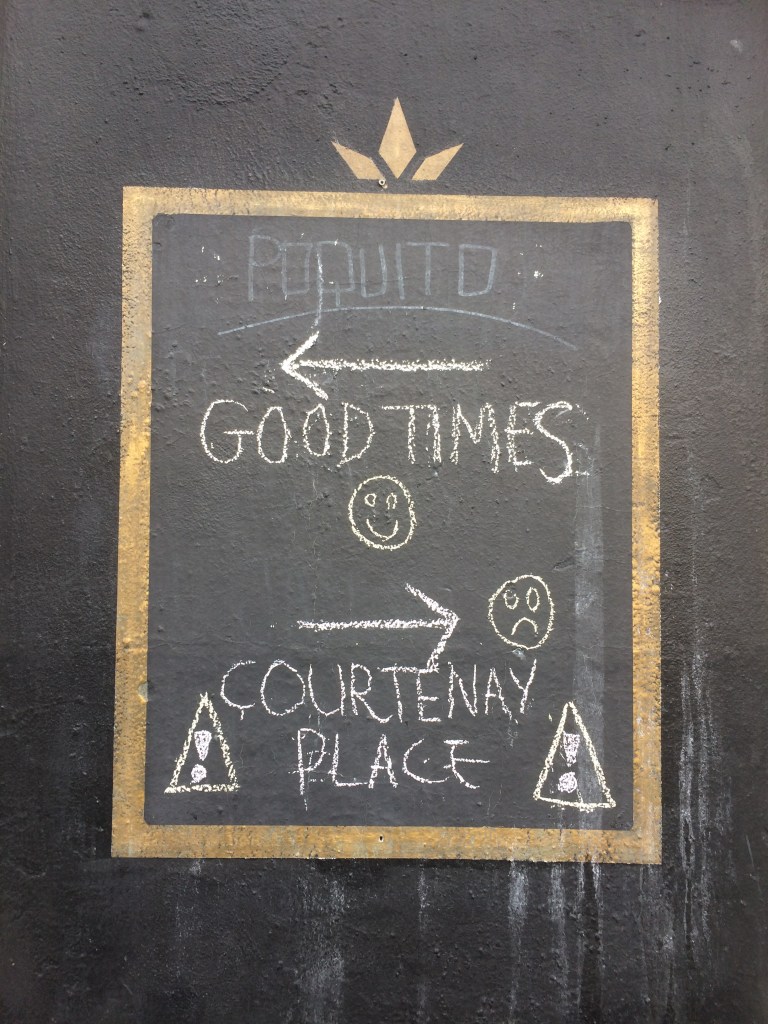 POQUITO
GOOD TIMES
COURTENAY
PLACE
! !